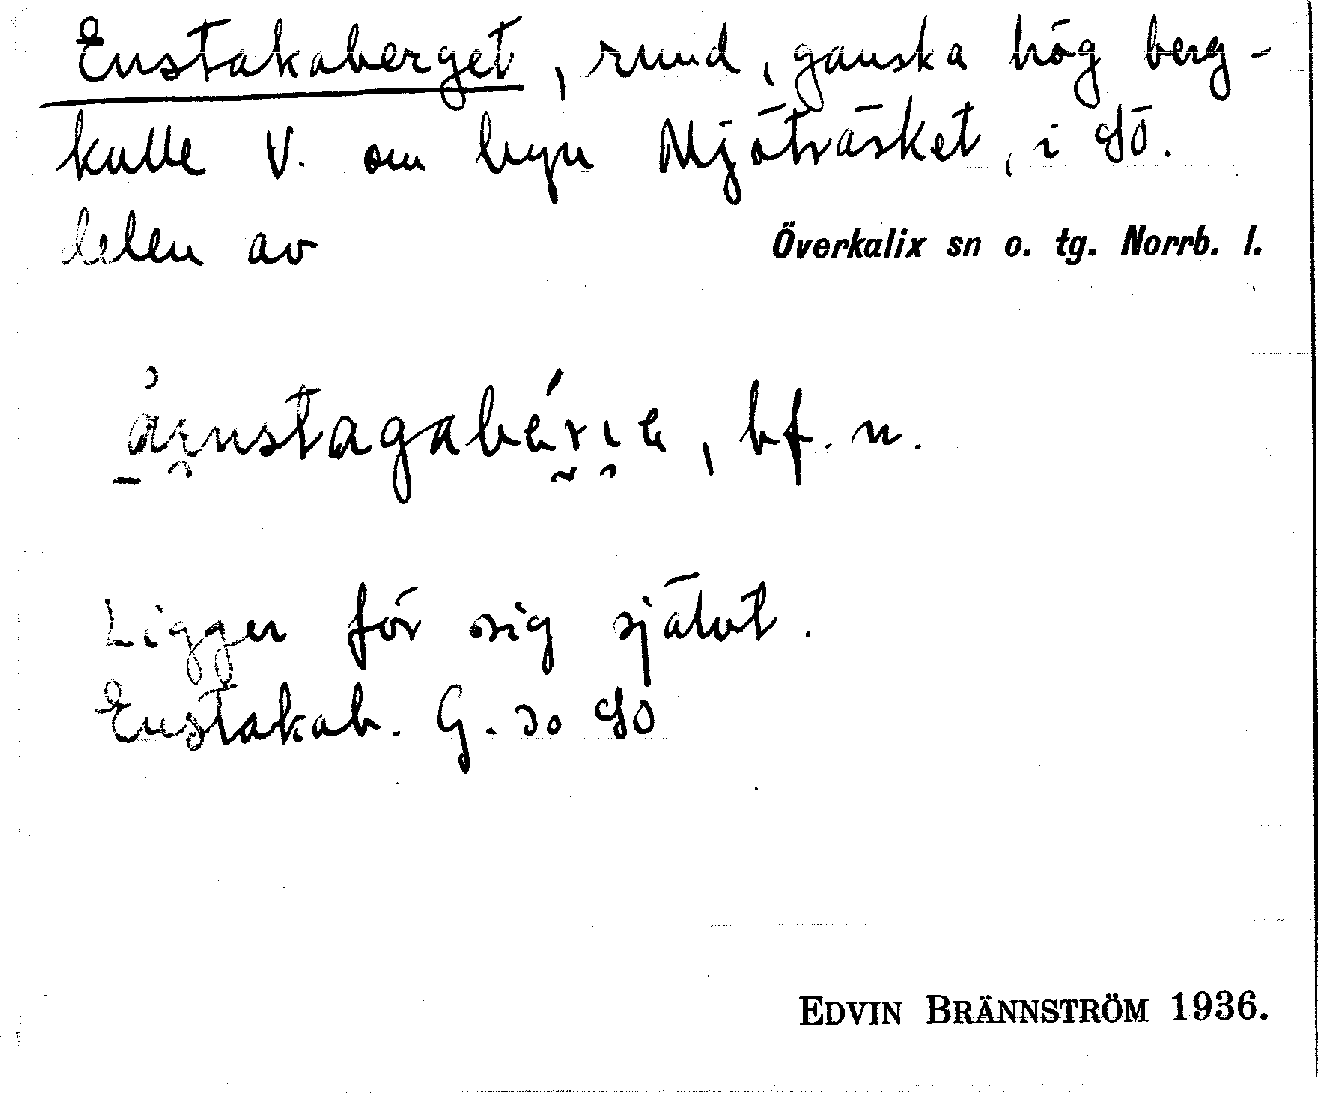 Enstakaberget, rund, ganska hög berg-
kulle V. om byn Mjöträsket, i SÖ.
delen av Överkalix sn o. tg. Norrb. l.
bf. n.
Ligger för sig självt.
Enstakab. G. SO
EDVIN BRÄNNSTRÖM 1936.